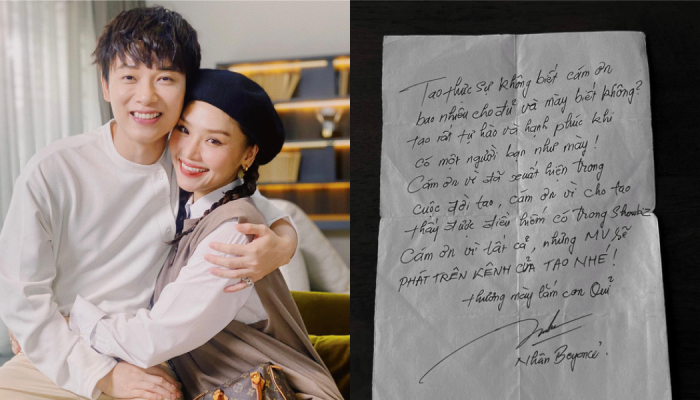 Tao thực sự không biết cám ơn
bao nhiêu cho đủ và mày biết không?
tao rất tự hào và hạnh phúc khi
có một người bạn như mày!
Cám ơn vì đã xuất hiện trong
cuộc đời tao, cám ơn vì cho tao
thấy được điều hiếm có trong Showbiz
Cám ơn vì tất cả, nhưng MV sẽ
PHÁT TRÊN KÊNH CỦA TAO NHÉ!
thương mày lắm con Quỉ
Nhân Beyoncé.